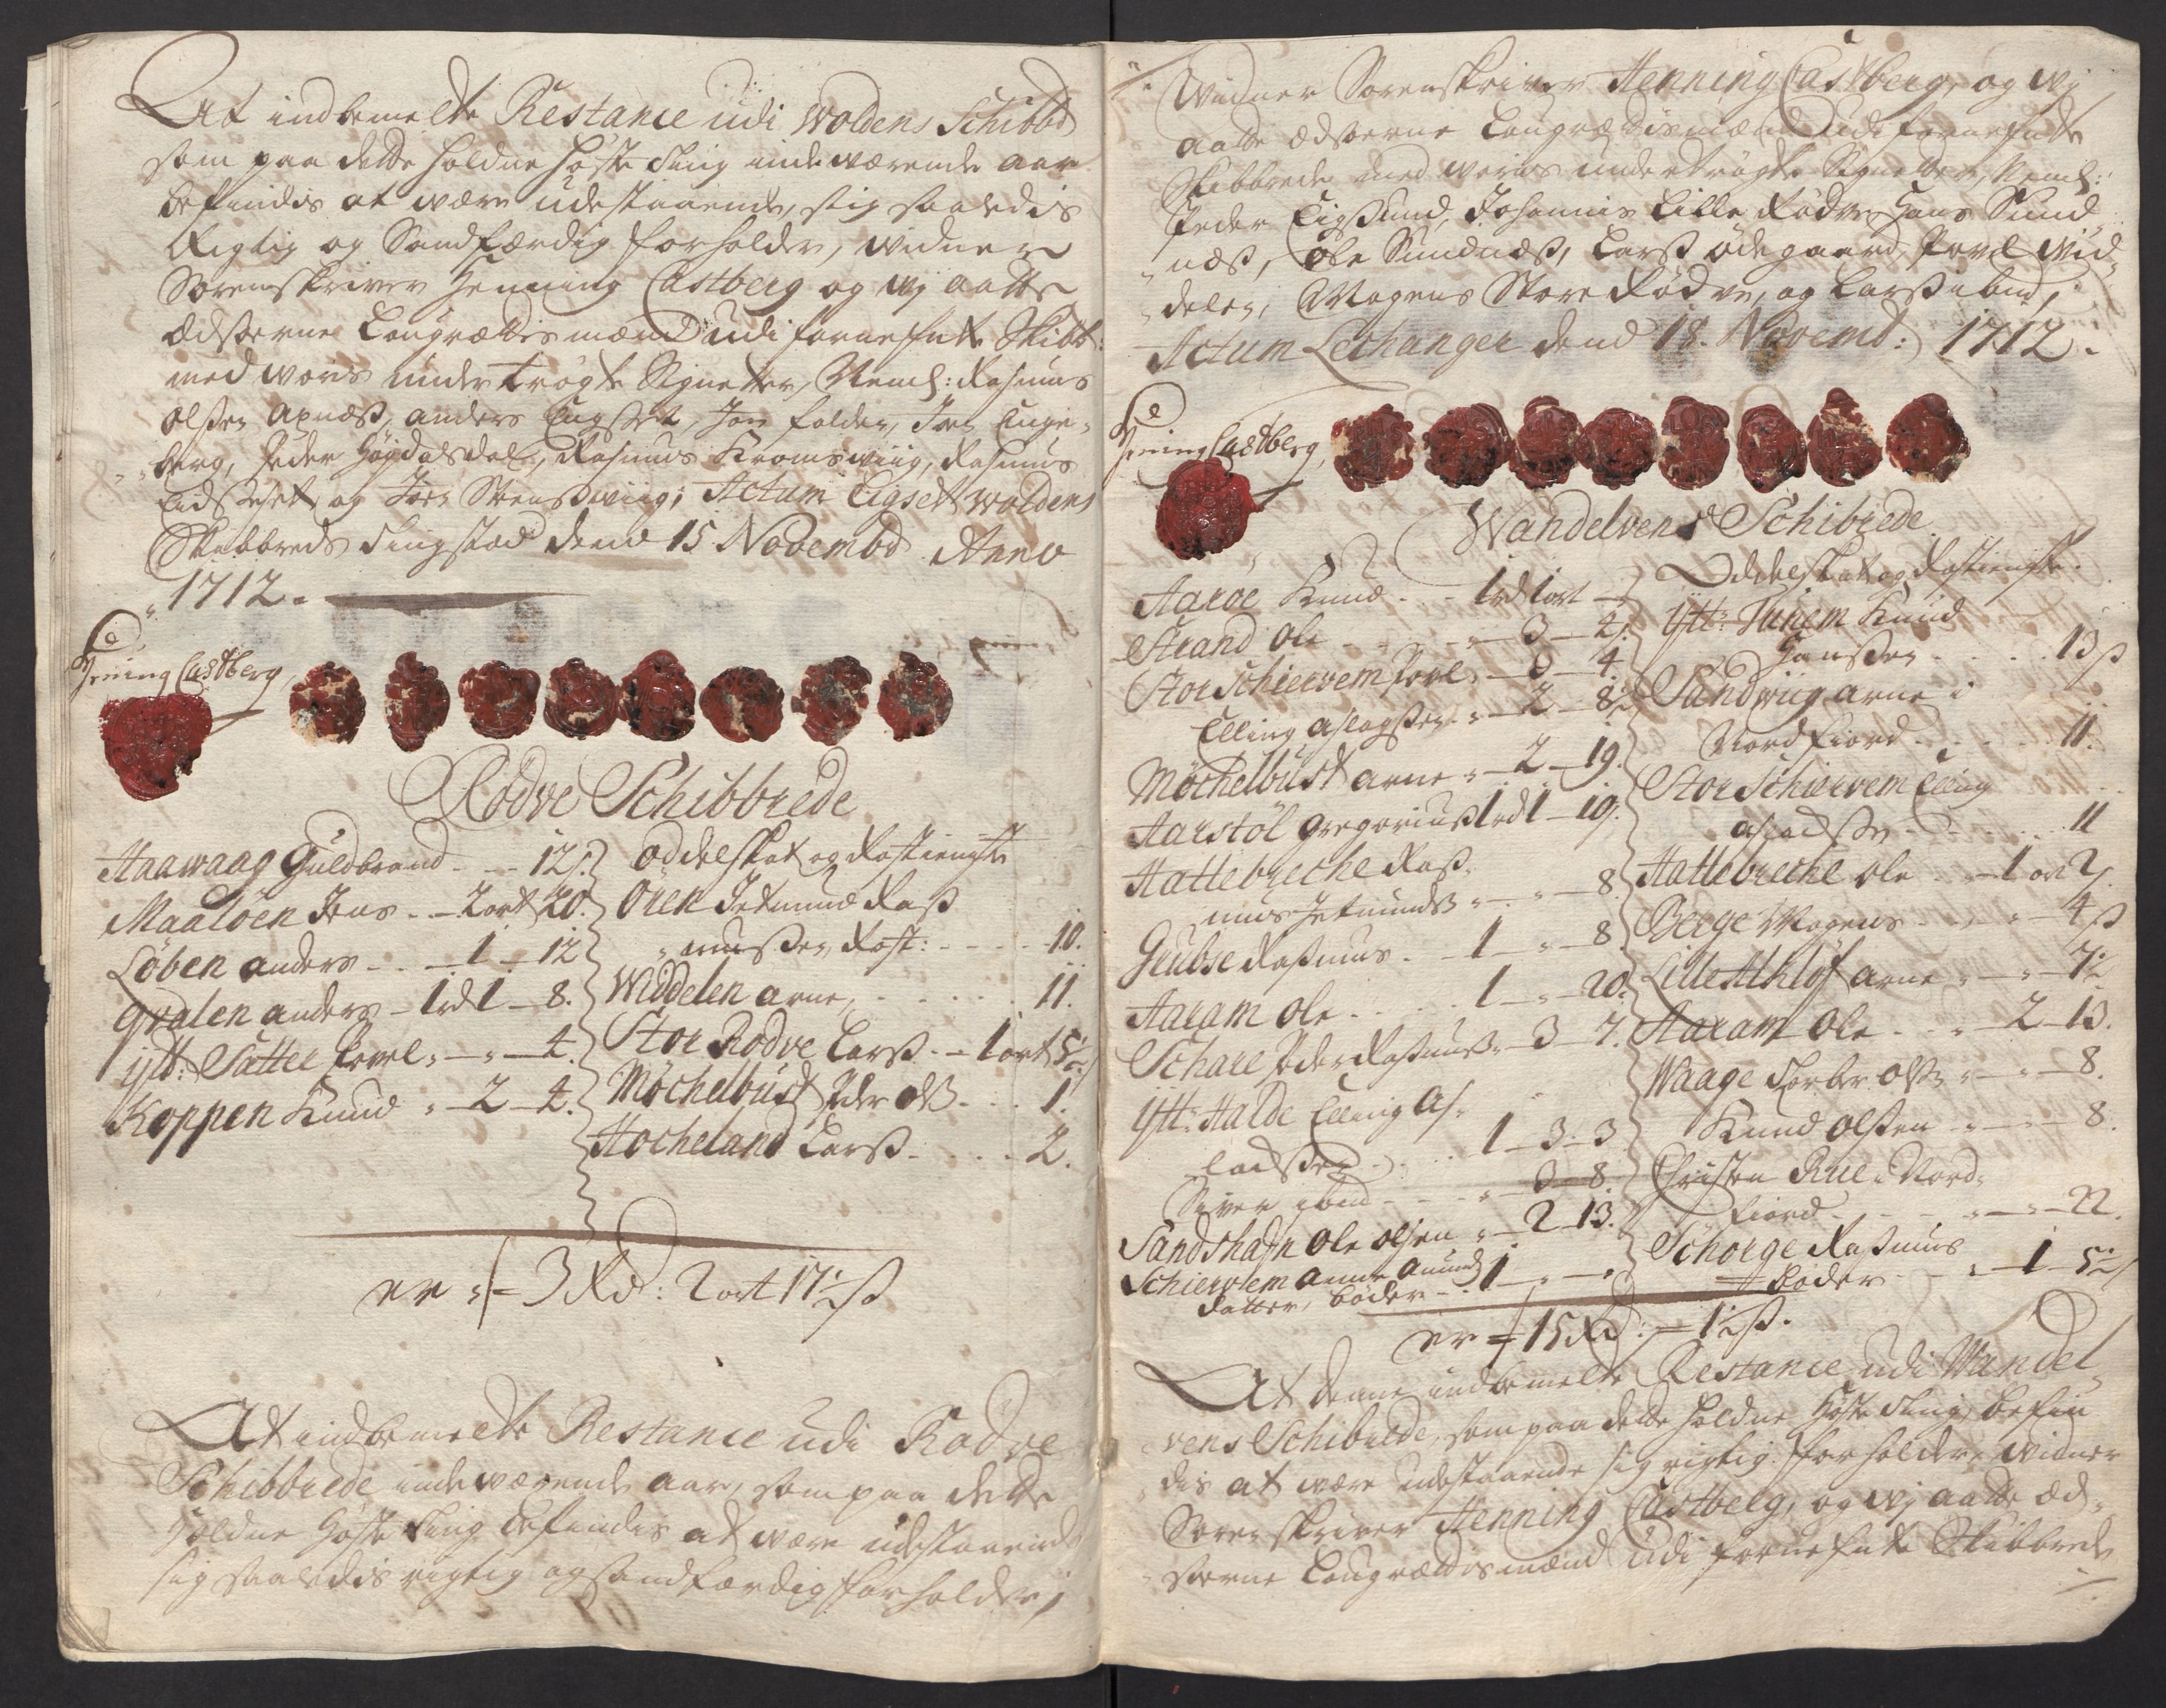 At indbemelte Restance udi Woldens Schibbd
som paa dette holdne Høste Ting indeværende aar
befindis at være udestaaende, sig saaledis
Rigtig og Sandfærdig forholder, widner
Sorenskriver Henning Castberg og wj aatte
Edsorne Laugrættismænd udi forneffnte Skibb:
med wores undertrøgte Signetter, Neml: Rasmus
Olsen Apnæs, anders Engset, Jon Folden, Jon Enge-
berg, Peder Høydalsdal, Rasmus Kromswiig, Rasmus
Eidsæhet og Joen Strenswiig; Actum Eigset Woldens
Skibbreds Tingstad Dend 15 Novembr Anno
1712.
Hening Castberg
Rodve Schibbrede
Haawaag Guldbrand - - 12 s.
Maaløen Jens - - 2 ort 20.
Løben anders - - 1 - 12
Qvalen anders - 1 rd 1 - 8.
Ytt: Sætter Povel - " - 4.
Koppen Knud " - 2 - 4.
Oddelskat og Rostieniste
Øien Jetmund Ras
mussen Rost: - - - 10.
Widdelen arne, . . . . 11.
Stor Rodve Lars. - 1 ort 5½ s
Møchelbust Peder Ols - . . 1.
Hocheland Lars. . . . 2.
er " - 3 Rd: 2 ort 17½ s
At indbemelte Restance udi Rodve
Schibbrede indeværende aar, som paa dette
holdne Høste Ting befindes at være udestaaende
sig saaledis rigtig og sandfærdig forholder,
Widner Sorenskriver Henning Castberg, og wj
aatte Edsorne Laugrættismænd udi forneffnte
Skibbrede med wores undertrøgte Signetter, Neml:
Peder Eigsund, Johannis Lille Rødve, Hans Sund
næs, Ole Sundnæs, Lars Ødegaard, Povel Wid-
delen, Mogens Store Rødve, og Lars ibid,
Actum Lechanger dend 18. Novemb: 1712.
Hening Castberg
Wandelvens Schibrede
Aarøe Knud - - 1 rd 1 ort -
Strand Ole - - - " - 3 - 2.
Stor Schiervem Povl, - 3 - 4.
Elling Aslagsen - " - 2 - 8½
Møchelbust arne " - 2 - 19.
Aarstøl Gregorius 1 rd 1 - 19.
Hattebreche Ras-
mus Jetmunds " - " - 8
Grubse Rasmus . - 1 - " - 8
Aaram Ole . . . 1 - " - 20.
Schare Peder Rasmus " 3 - 7.
Ytt: Halde Elling As-
ladsen . . . 1 - 3 - 3
Siver ibid - - - " - 3 - 8.
Sandshafn Ole Olsen " - 2 - 13.
Schiervem Anne Amund
datter, bøder - . 1 - " - "
Oddelskat og Rostieniste.
Ytt: Tunem Knud
Hansen . . . . 13 s
Sandwiig arne i
Nordfiord . . . . . 11.
Stor Schiervem Elling
Asladsen - . . . . 11
Hattebreche Ole . - 1 ort 2.
Berge Mogens - - " - 4 s
Lille Alhløf arne " - " - 7½
Aaram Ole - . . " - 2 - 13.
Waage Torber Ols " - " - 8.
Knud Olsen - " - " - 8.
Christen Rue i Nord-
fiord - - - " - " - 22.
Schorge Rasmus
bøder - - " - 1 - 5½
er - 15 Rd: - 1½ s.
At denne indbemelte Restance udi Wandel-
vens Schibrede, som paa dette holdne Høste Ting, befin
dis at være udestaaende sig rigtig forholder, widner
Sorenskriver Henning Castberg, og wj aatte Ed-
sorne Laugrættismænd udi forneffnte Skibbrede